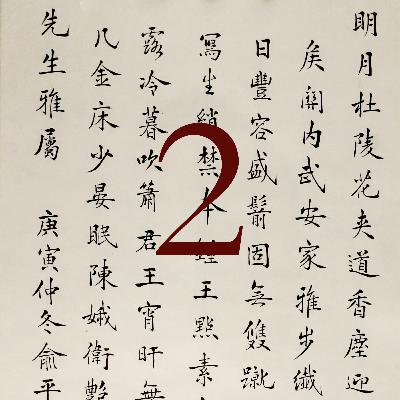 明月杜陵花夾道香塵迎
矦關内武安家雅步纖
日豐容盛鬋固無雙蹴
寫生綃禁本王點素
露冷暮吹簫君王宵旰無
几金床少晏眠陳娥衛艷
先生雅屬 庚寅仲冬俞平
2